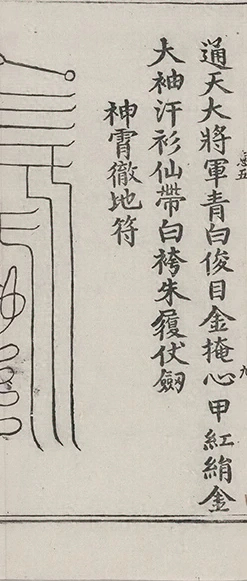 通天大將軍青白俊目金掩心甲紅絹金
大袖汗衫仙帶白袴朱履伏劔
神霄徹地符